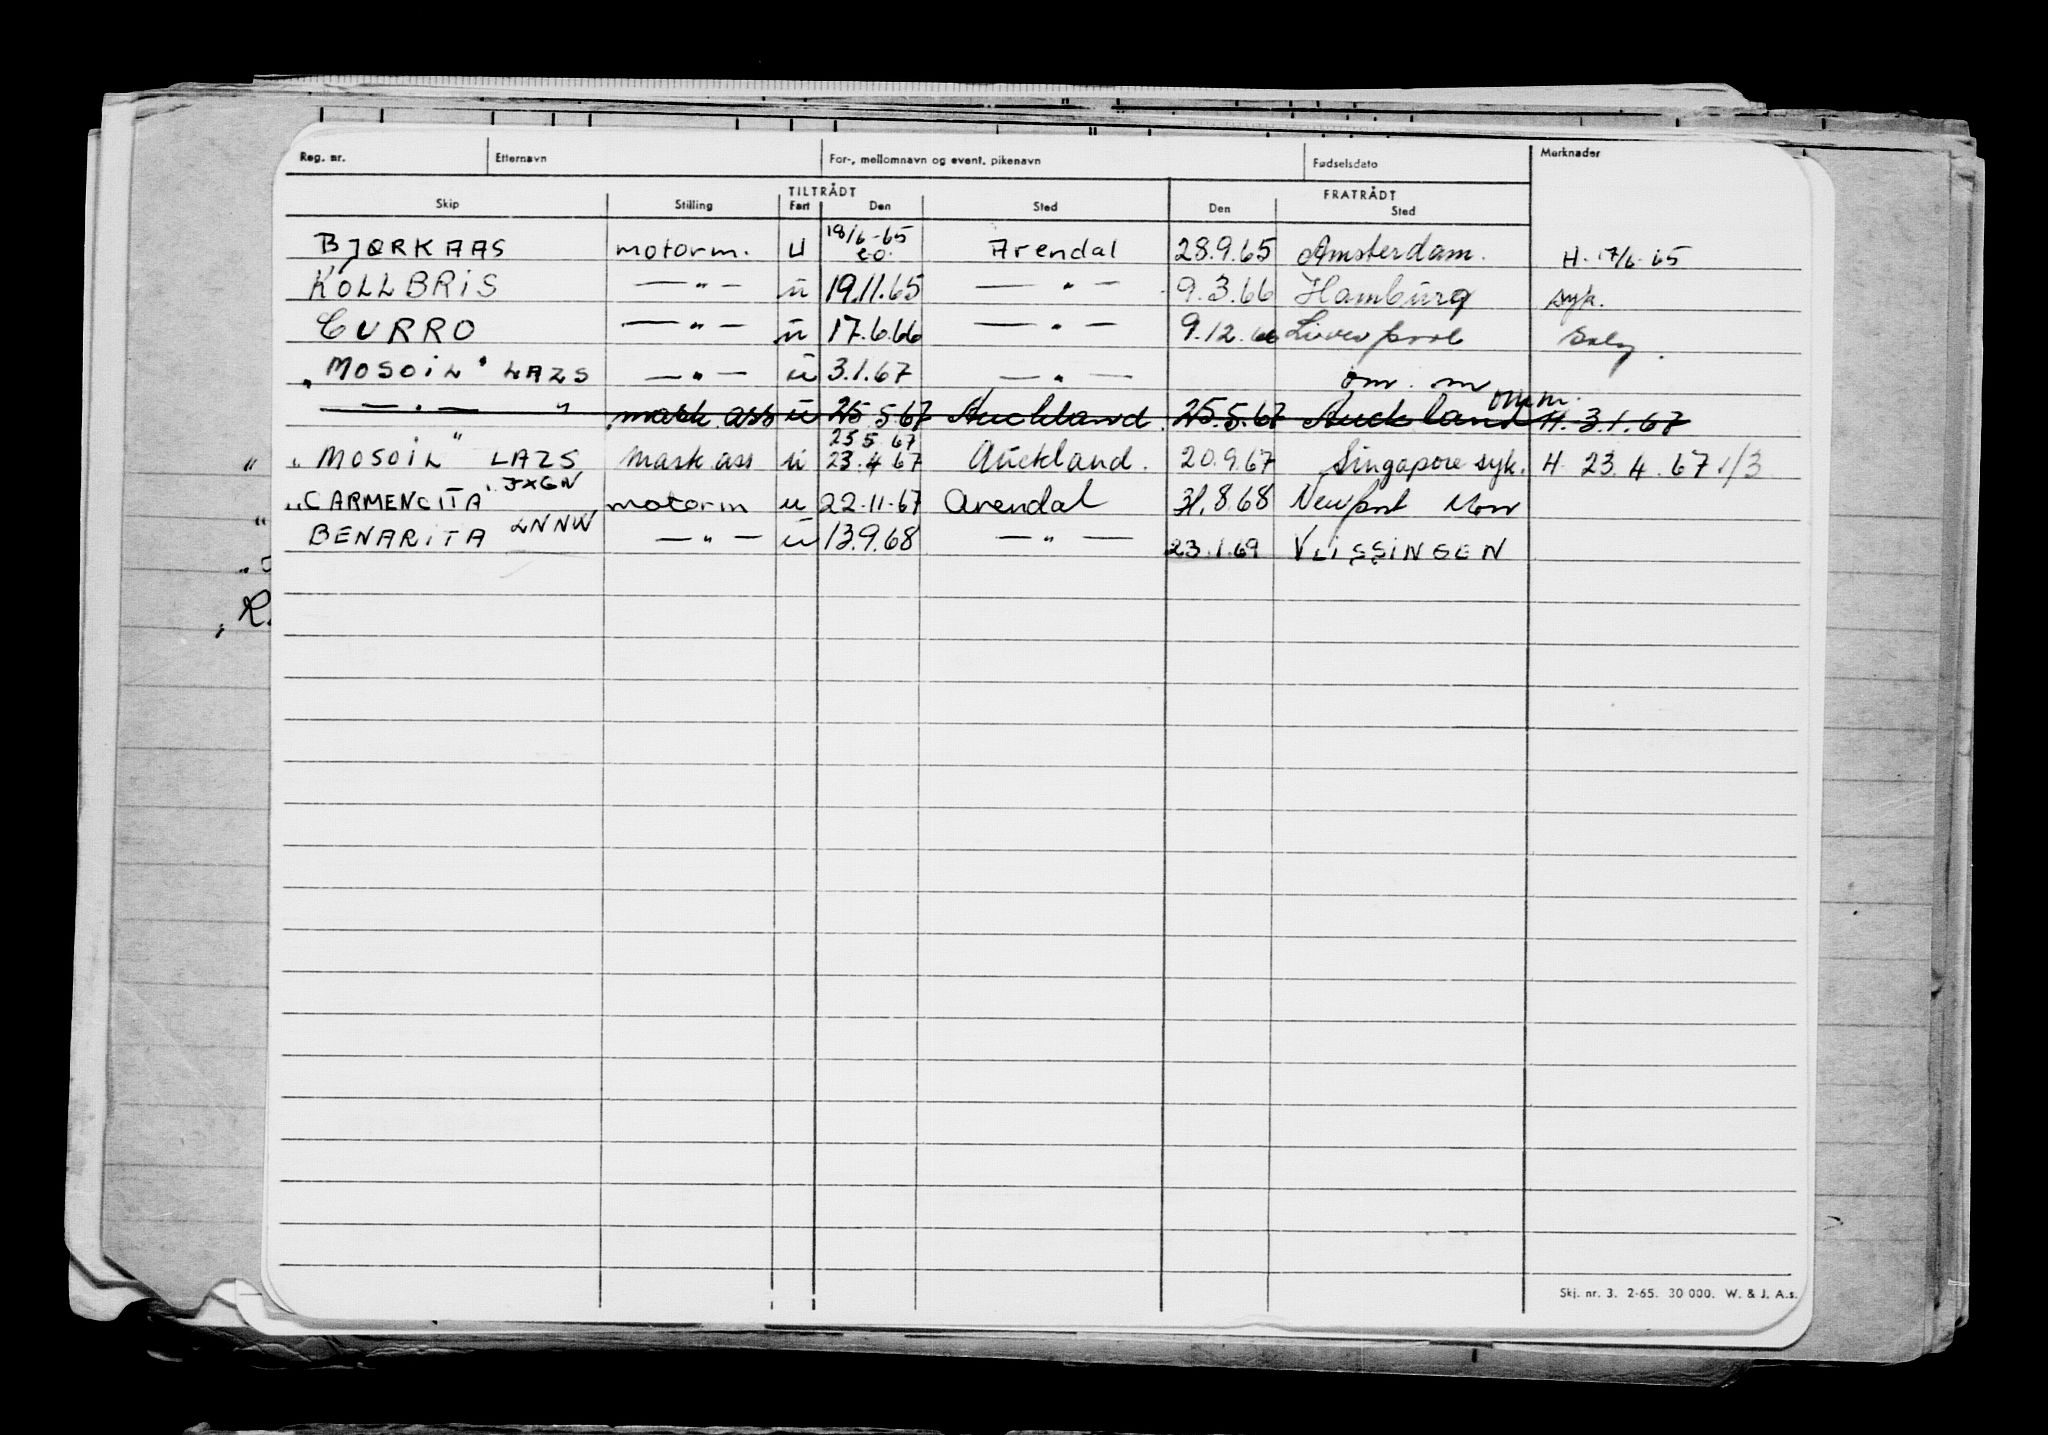 Reg. nr. Etternavn For-, mellomnavn og event. pikenavn Fødselsdato Merknader
TILTRÅDT FRATRÅDT
Skip Stilling Fart Den Sted Den Sted
BJØRKAAS motorm. U 18/6-65 e.o. Arendal 28.9.65 Amsterdam. H. 17/6-65
KOLLBRIS — " — ü 19.11.65 — " — 9.3.66 Hamburg syk.
CURRO — " — ü 17.6.66 — " — 9.12.66 Liverpool
"MOSOIL" LAZS — " — ü 3.1.67 — " — om. m
— " — " mask ass ü 25.5.67 Auckland 25.5.67 Auckland omm. H. 3.1.67
25 5 67
" "MOSOIL" LAZS mask ass ü 23.4.67 Auckland. 20.9.67 Singapore syk. H. 23.4.67
"CARMENCITA" JXGN motorm u 22.11-67 Arendal 31.8.68 Newport Mon
BENARITA LNNW — " — ü 13.9.68 — " — 23.1.69 VLISSINGEN
R.
Skj. nr. 3. 2-65. 30 000. W. & J. A.s.